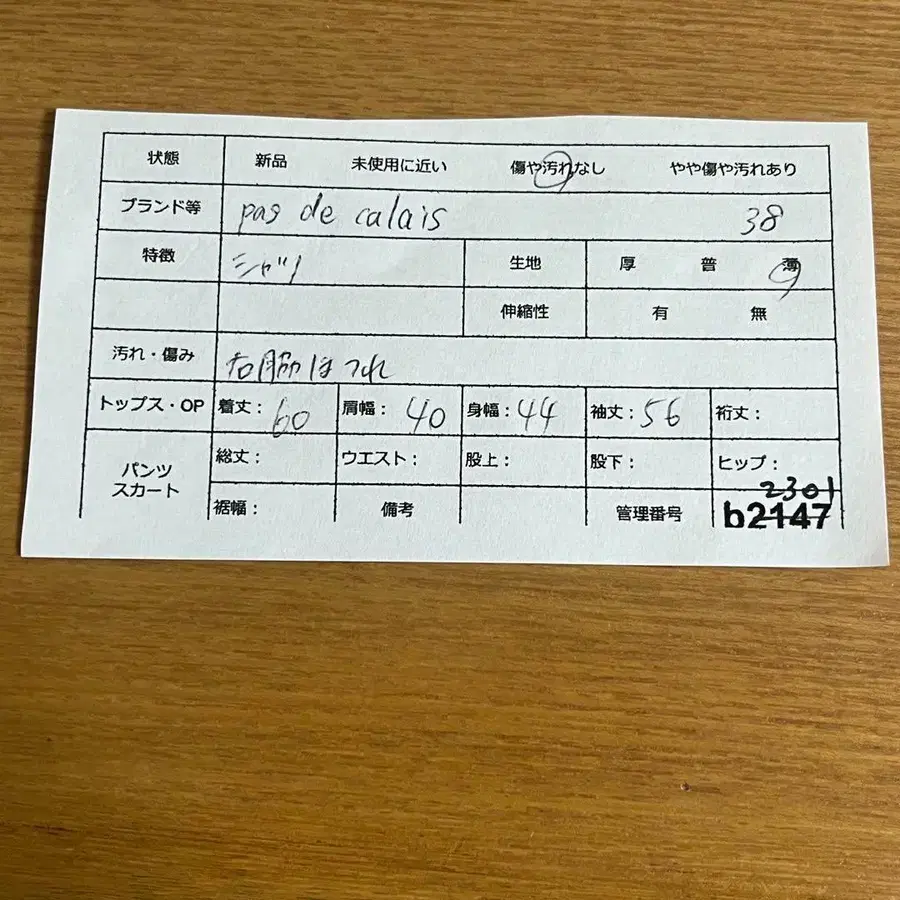 状態 新品 未使用に近い 傷や汚れなし やや傷や汚れあり
ブランド等 pas de calais 38
特徴 シャツ 生地 厚 普 薄
伸縮性 有 無
汚れ・傷み 右脇ほつれ
トップス・OP 着丈: 60 肩幅: 40 身幅: 44 袖丈: 56 裄丈:
パンツ スカート 総丈: ウエスト: 股上: 股下: ヒップ:
2301
裾幅: 備考 管理番号 b2147